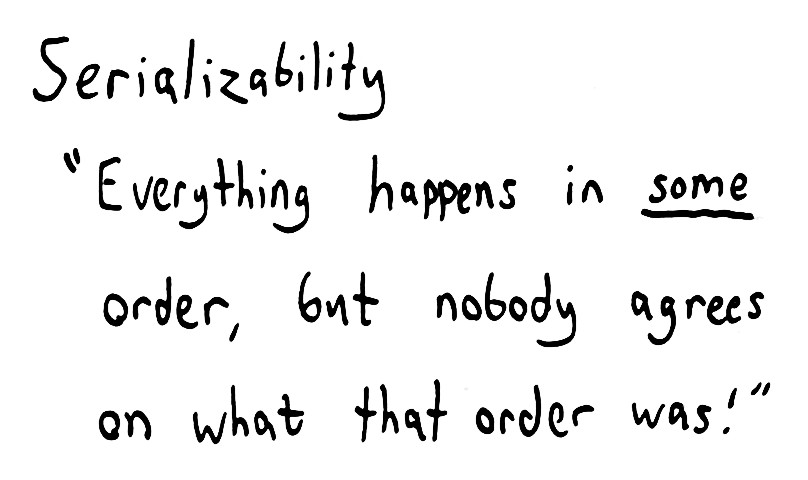 Serializability
"Everything happens in some
order, but nobody agrees
on what that order was!"